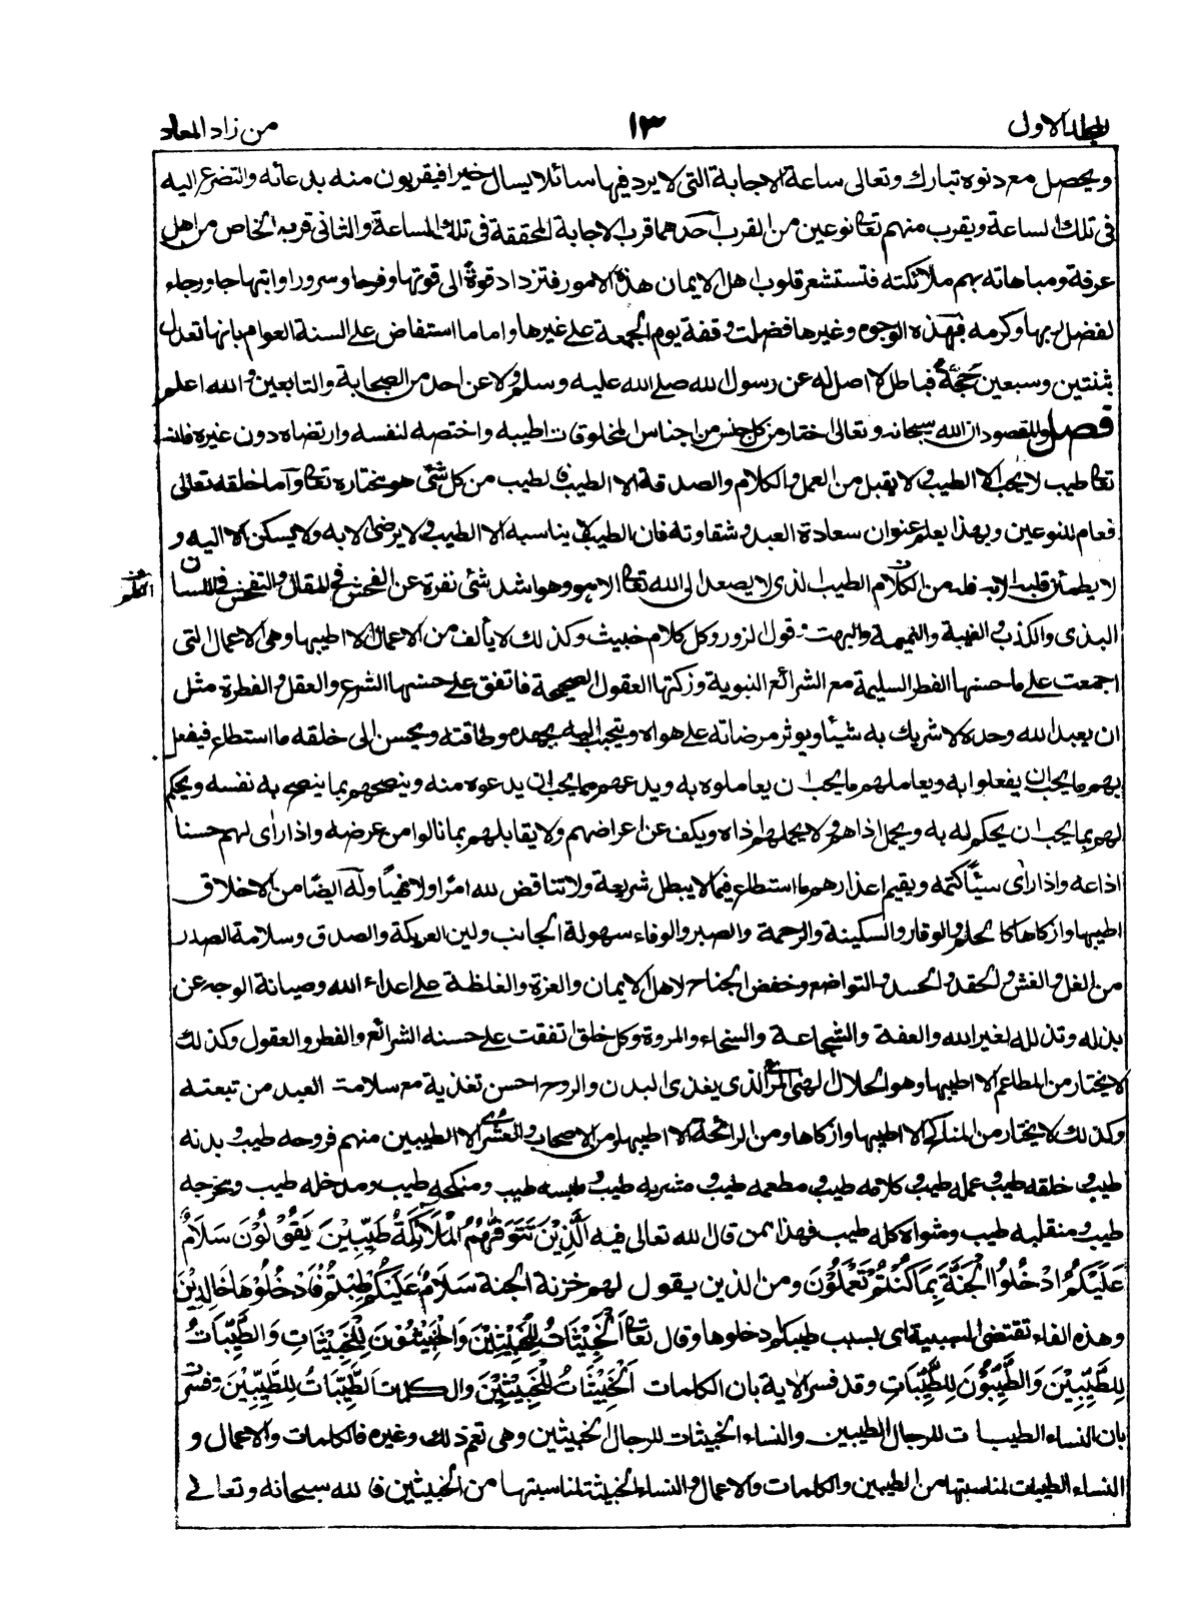 المجلد الاول
١٣
من زاد المعاد
ويحصل مع دنوه تبارك وتعالى ساعة الاجابة التى لا يرد فيها سائلا يسأل خيرا فيقربون منه بدعائه والتضرع اليه
فى تلك الساعة ويقرب منهم تعالى نوعين من القرب احدهما قرب الاجابة المحققة فى تلك الساعة والثانى قربه الخاص من اهل
عرفة ومباهاته بهم ملائكته فتستشعر قلوب اهل الايمان هذه الامور فتزداد قوة الى قوتها وفرحا وسرورا وابتهاجا ورجاء
لفضل ربها وكرمه فبهذه الوجوه وغيرها فضلت وقفة يوم الجمعة على غيرها واما ما استفاض على السنة العوام بانها تعدل
ثنتين وسبعين حجة فباطل لا اصل له عن رسول الله صلى الله عليه وسلم ولا عن احد من الصحابة والتابعين والله اعلم
فصل والمقصود ان الله سبحانه وتعالى اختار من كل جنس من اجناس المخلوقات اطيبه واختصه لنفسه وارتضاه دون غيره فانه
تعالى طيب لا يحب الا الطيب ولا يقبل من العمل والكلام والصدقة الا الطيب فالطيب من كل شئ هو مختاره تعالى واما خلقه تعالى
فعام للنوعين وبهذا يعلم عنوان سعادة العبد وشقاوته فان الطيب لا يناسبه الا الطيب ولا يرضى الا به ولا يسكن الا اليه و
لا يطمئن قلبه الا به فله من الكلام الطيب الذى لا يصعد الى الله تعالى الا هو وهو اشد شئ نفرة عن الفحش فى المقال والتفحش فى اللسان
البذى والكذب والغيبة والنميمة والبهت وقول الزور وكل كلام خبيث وكذلك لا يألف من الاعمال الا اطيبها وهى الاعمال التى
اجمعت على حسنها الفطر السليمة مع الشرائع النبوية وزكتها العقول الصحيحة فاتفق على حسنها الشرع والعقل والفطرة مثل
ان يعبد الله وحده لا شريك به شيئا ويوثر مرضاته على هواه ويتحبب اليه بجهده وطاقته ويحسن الى خلقه ما استطاع فيفعل
بهم ما يحب ان يفعلوا به ويعاملهم ما يحب ان يعاملوه به ويدعهم مما يحب ان يدعوه منه وينصحهم بما ينصح به نفسه ويحكم
لهم بما يحب ان يحكم له به ويحمل اذاهم ولا يحملهم اذاه ويكف عن اعراضهم ولا يقابلهم بما نالوا من عرضه واذا راى لهم حسنا
اذاعه واذا راى سيئا كتمه ويقيم اعذارهم ما استطاع فيما لا يبطل شريعة ولا تناقض لله امرا ولا نهيا وله ايضا من الاخلاق
اطيبها وازكاها كالحلم والوقار والسكينة والرحمة والصبر والوفاء سهولة الجانب ولين العريكة والصدق وسلامة الصدر
من الغل والغش والحقد والحسد والتواضع وخفض الجناح لاهل الايمان والعزة والغلظة على اعداء الله وصيانة الوجه عن
بذله وتذلله لغير الله والعفة والشجاعة والسخاء والمروة وكل خلق اتفقت على حسنه الشرائع والفطر والعقول وكذلك
لا يختار من المطاعم الا اطيبها وهو الحلال الهنى المرئ الذى يغذى البدن والروح احسن تغذية مع سلامة العبد من تبعته
وكذلك لا يختار من المناكح الا اطيبها وازكاها ومن الرائحة الا اطيبها ومن الاصحاب والعشراء الا الطيبين منهم فروحه طيب وبدنه
طيب وخلقه طيب وعمله طيب وكلامه طيب ومطعمه طيب ومشربه طيب وملبسه طيب ومنكحه طيب ومدخله طيب ومخرجه
طيب ومنقلبه طيب ومثواه كله طيب فهذا ممن قال الله تعالى فيه اَلَّذِيْنَ تَتَوَفّٰهُمُ الْمَلَائِكَةُ طَيِّبِيْنَ يَقُوْلُوْنَ سَلَامٌ
عَلَيْكُمُ ادْخُلُوا الْجَنَّةَ بِمَا كُنْتُمْ تَعْمَلُوْنَ ومن الذين يقول لهم خزنة الجنة سَلَامٌ عَلَيْكُمْ طِبْتُمْ فَادْخُلُوْهَا خَالِدِيْنَ
وهذه الفاء تقتضى السببية اى بسبب طيبكم ادخلوها وقال تعالى اَلْخَبِيْثَاتُ لِلْخَبِيْثِيْنَ وَالْخَبِيْثُوْنَ لِلْخَبِيْثَاتِ وَالطَّيِّبَاتُ
لِلطَّيِّبِيْنَ وَالطَّيِّبُوْنَ لِلطَّيِّبَاتِ وقد فسر الاية بان الكلمات اَلْخَبِيْثَاتُ لِلْخَبِيْثِيْنَ والكلمات اَلطَّيِّبَاتُ لِلطَّيِّبِيْنَ وفسرت
بان النساء الطيبات للرجال الطيبين والنساء الخبيثات للرجال الخبيثين وهى تعم ذلك وغيره فالكلمات والاعمال و
النساء الطيبات لمناسبتها من الطيبين والكلمات والاعمال والنساء الخبيثة لمناسبتها من الخبيثين فالله سبحانه وتعالى